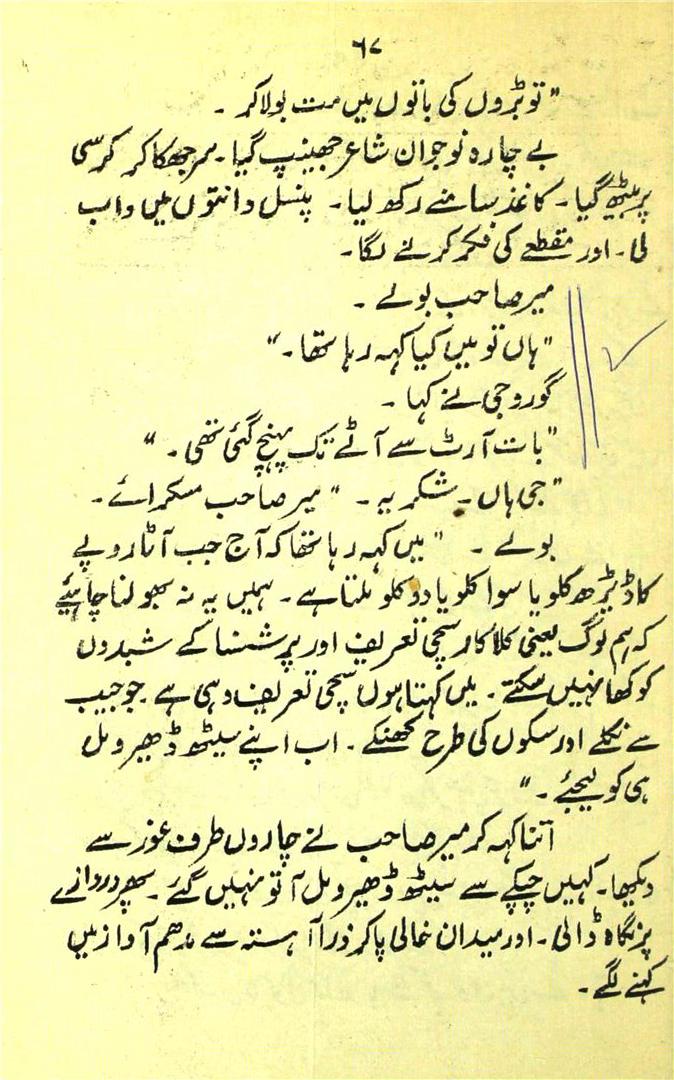 ٦٧
"تو بڑوں کی باتوں میں مت بولا کر ۔
بے چارہ نوجوان شاعر جھینپ گیا ۔ سر جھکا کر کرسی
پر بیٹھ گیا ۔ کاغذ سامنے رکھ لیا ۔ پنسل دانتوں میں داب
لی ۔ اور مقطعے کی فکر کرنے لگا ۔
میر صاحب بولے ۔
"ہاں تو میں کیا کہہ رہا تھا ۔"
گوروجی نے کہا ۔
"بات آرٹ سے آٹے تک پہنچ گئی تھی ۔"
"جی ہاں ۔ شکریہ ۔" میر صاحب مسکرائے ۔
بولے ۔ "میں کہہ رہا تھا کہ آج جب آٹا روپے
کا ڈیڑھ کلو یا سوا کلو یا دو کلو ملتا ہے ۔ ہمیں یہ نہ بھولنا چاہیئے
کہ ہم لوگ یعنی کلاکار سچی تعریف اور پرشنسا کے شبدوں
کو کھا نہیں سکتے ۔ میں کہتا ہوں سچی تعریف وہی ہے ۔ جو جیب
سے نکلے اور سکوں کی طرح کھنکے ۔ اب اپنے سیٹھ ڈھیرو مل
ہی کو لیجئے ۔"
اتنا کہہ کر میر صاحب نے چاروں طرف غور سے
دیکھا ۔ کہیں چپکے سے سیٹھ ڈھیرو مل آ تو نہیں گئے ۔ پھر دروازے
پر نگاہ ڈالی ۔ اور میدان خالی پا کر ذرا آہستہ سے مدھم آواز میں
کہنے لگے ۔